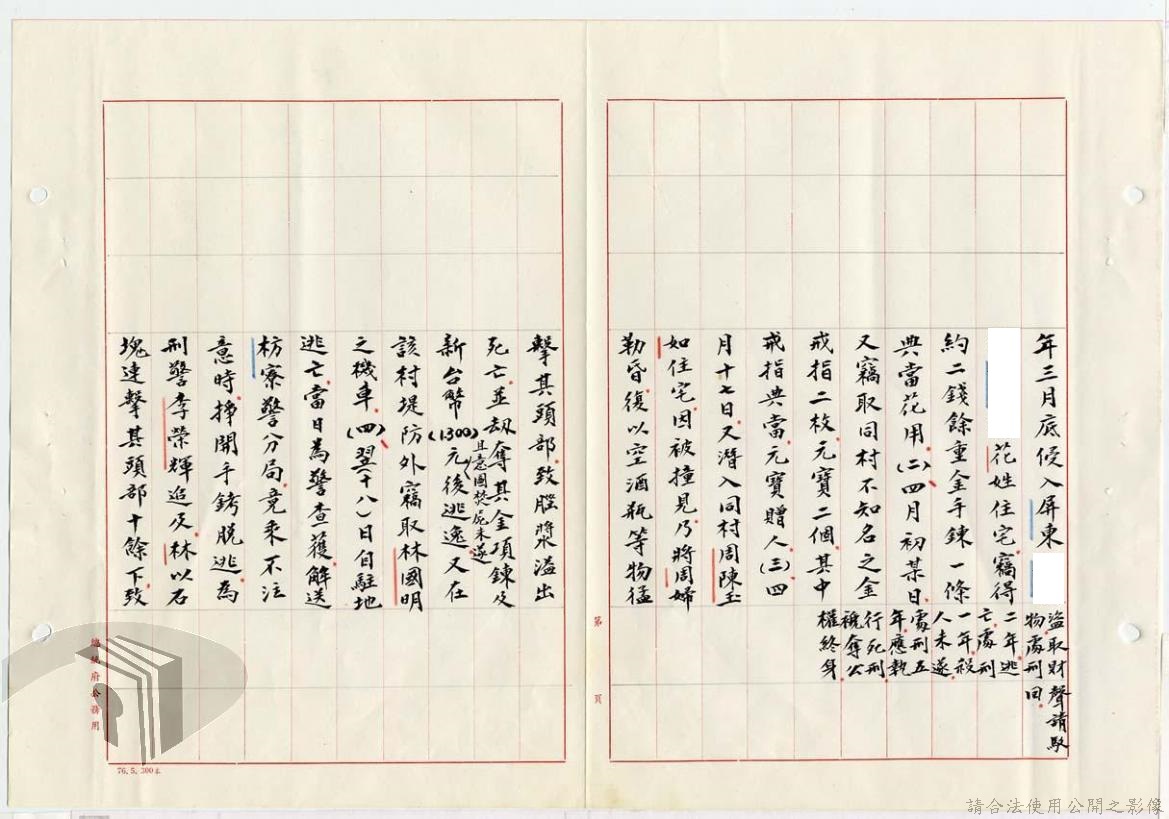 年三月底侵入屏東
花姓住宅，竊得
約二錢餘重金手鍊一條
典當花用。(二)四月初某日，
又竊取同村不知名之金
戒指二枚，元寶二個，其中
戒指典當，元寶贈人。(三)四
月十七日，又潛入同村周陳玉
如住宅，因被撞見，乃將周婦
勒昏，復以空酒瓶等物猛
盜取財
物，處刑
二年，逃
亡，處刑
一年，殺
人未遂，
處刑五
年，應執
行死刑，
褫奪公
權終身。
聲請駁
回。
第
頁
擊其頭部，致腦漿溢出
死亡，並劫奪其金項鍊及
新台幣(1300)元，後逃逸，又在
且意圖焚屍未遂
該村堤防外竊取林國明
之機車。(四)翌(十八)日自駐地
逃亡，當日為警查獲，解送
枋寮警分局，竟乘不注
意時，掙開手銬脫逃，為
刑警李榮輝追及，林以石
塊連擊其頭部十餘下，致
總統府公務用
76. 5. 300本
請合法使用公開之影像